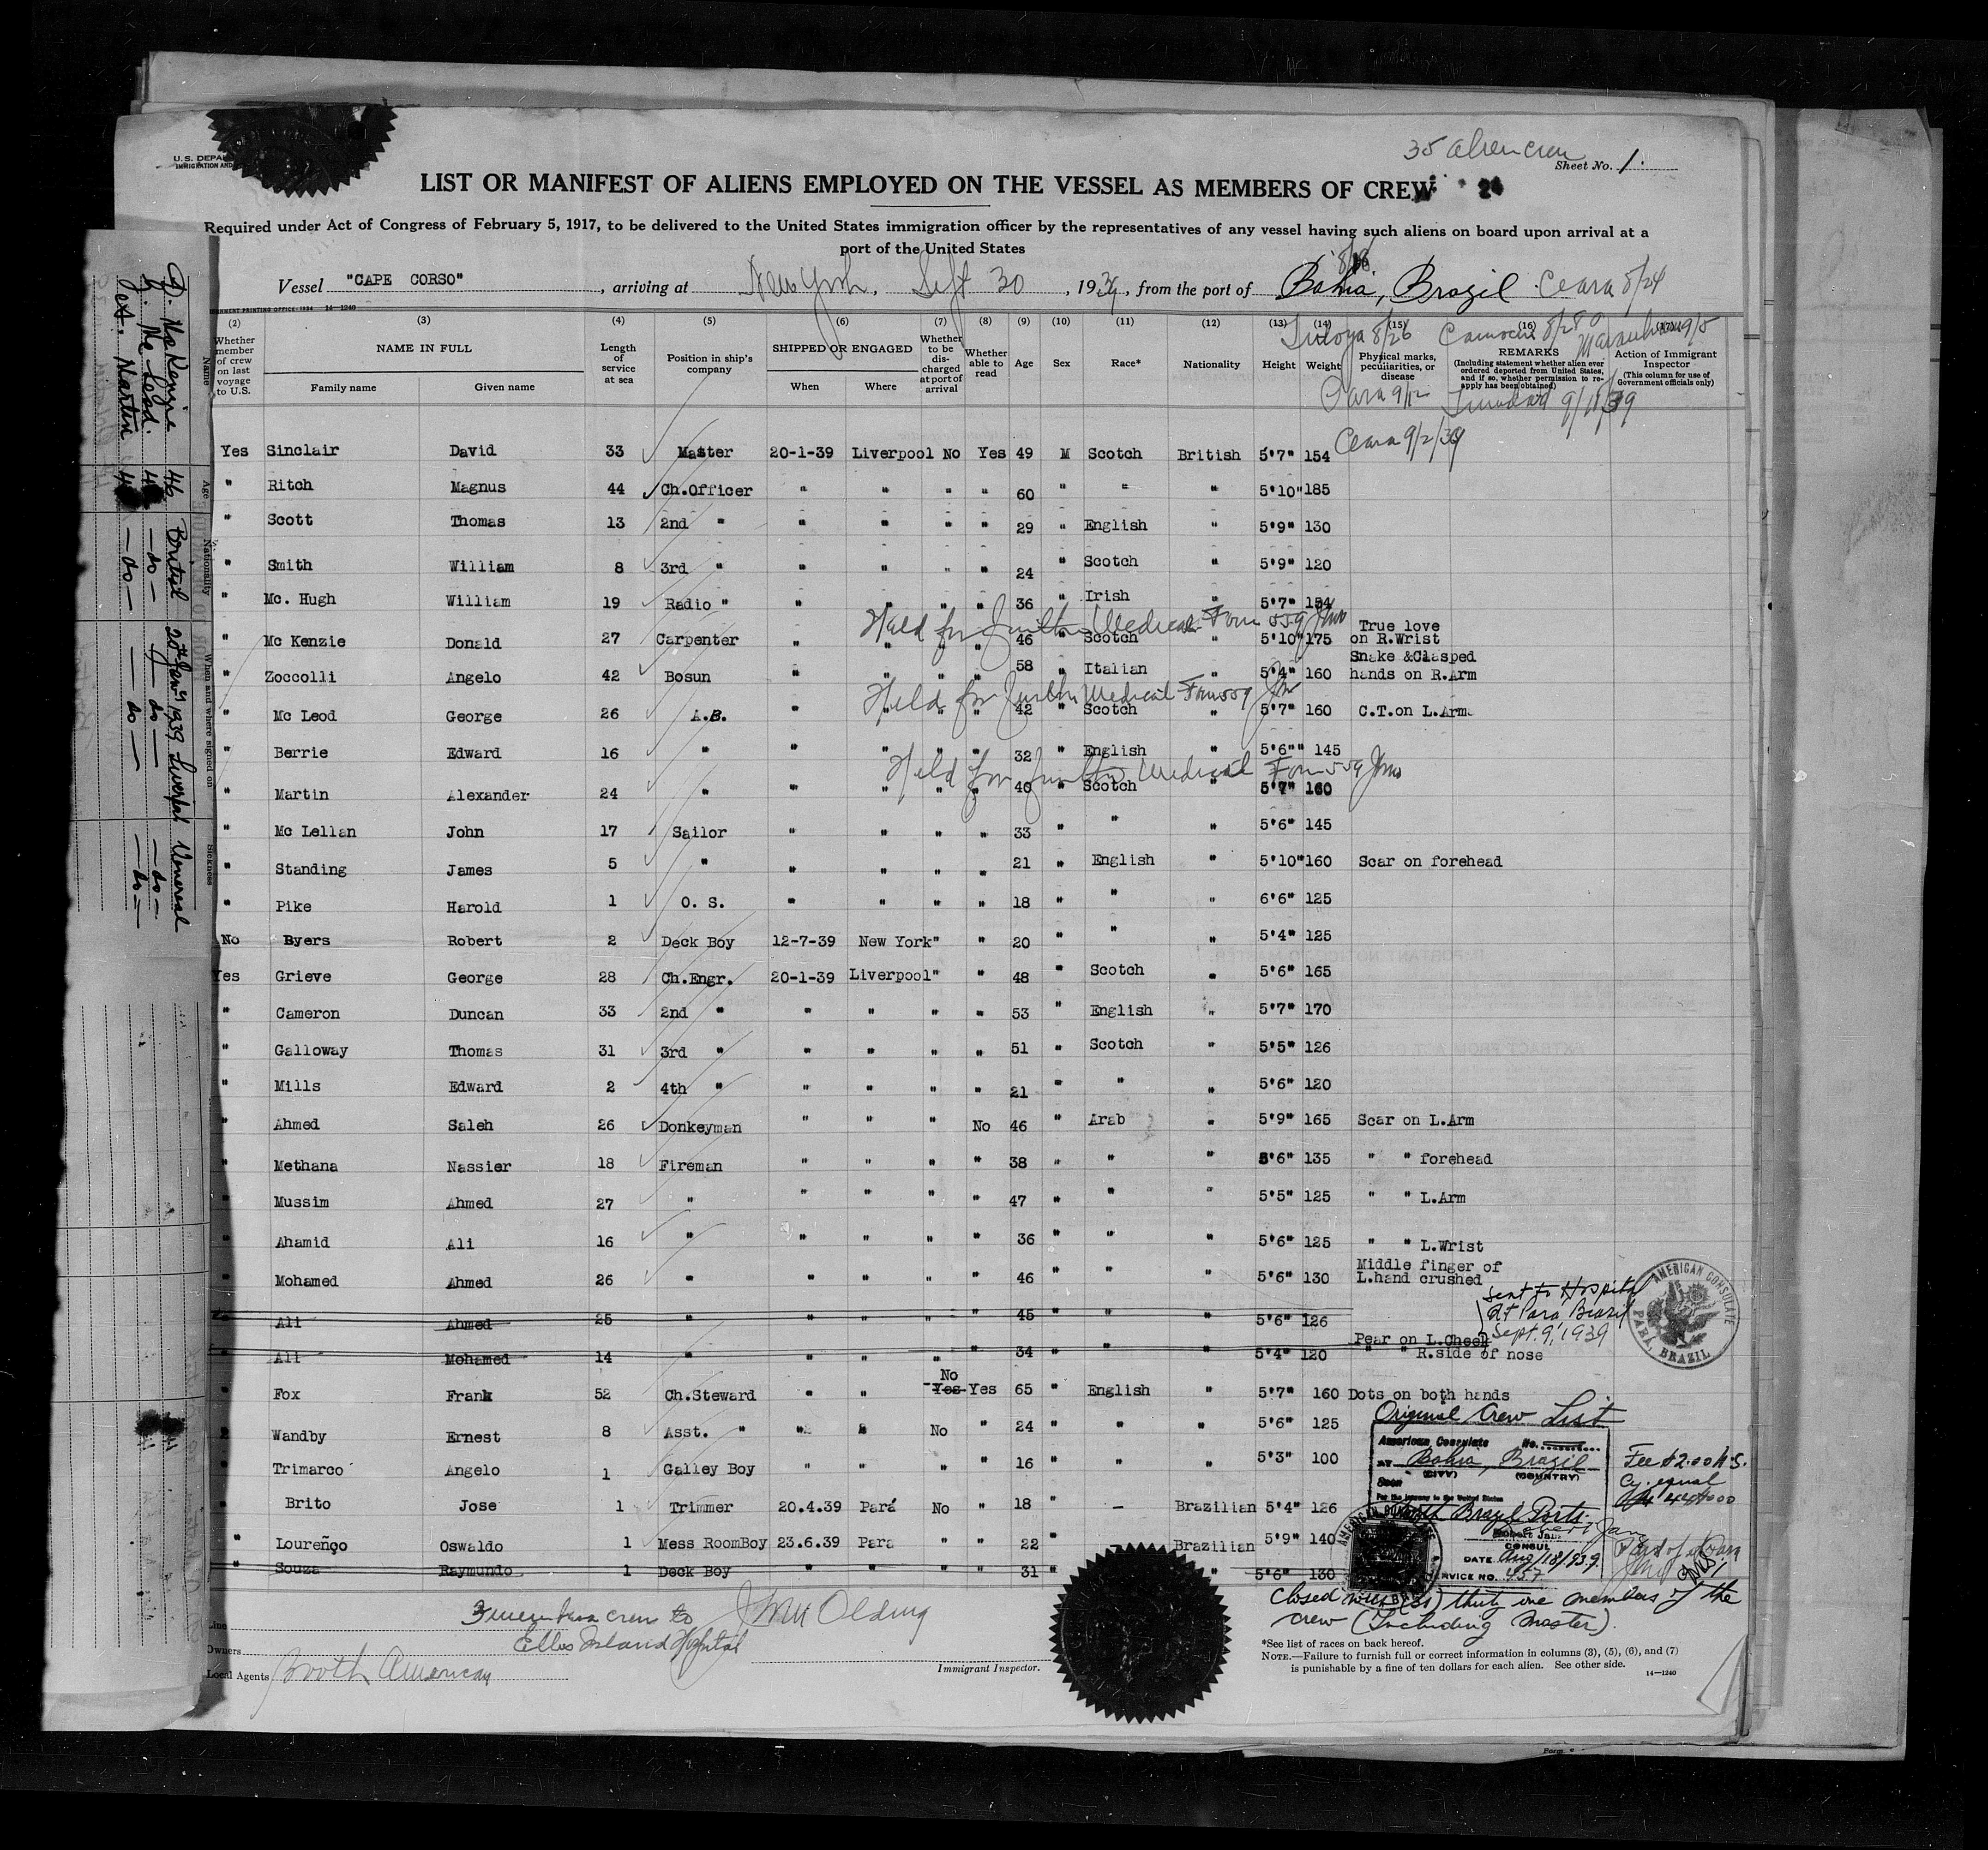 35 alien crew
U.S. DEPA
IMMIGRATION AND
Sheet No. 1.
LIST OR MANIFEST OF ALIENS EMPLOYED ON THE VESSEL AS MEMBERS OF CREW
Required under Act of Congress of February 5, 1917, to be delivered to the United States immigration officer by the representatives of any vessel having such aliens on board upon arrival at a
port of the United States
8/18
Vessel "CAPE CORSO", arriving at New York, Sept 30, 1939, from the port of Bahia, Brazil Ceara 8/24
14—1240
(2) (3) (4) (5) (6) (7) (8) (9) (10) (11) (12) (13) (14) (15) (16)
Tutoya 8/26 Camocim 8/28 Maranham 9/5
Para 9/12 Trinidad 9/18/39
Ceara 9/2/39
Whether member of crew on last voyage to U.S.
NAME IN FULL
Family name Given name
Length of service at sea
Position in ship's company
SHIPPED OR ENGAGED
When Where
Whether to be discharged at port of arrival
Whether able to read
Age Sex Race* Nationality Height Weight
Physical marks, peculiarities, or disease
REMARKS
(Including statement whether alien ever ordered deported from United States, and if so, whether permission to reapply has been obtained)
Action of Immigrant Inspector
(This column for use of Government officials only)
Yes Sinclair David 33 Master 20-1-39 Liverpool No Yes 49 M Scotch British 5'7" 154
" Ritch Magnus 44 Ch.Officer " " " " 60 " " " 5'10" 185
" Scott Thomas 13 2nd " " " " " 29 " English " 5'9" 130
" Smith William 8 3rd " " " " " 24 " Scotch " 5'9" 120
" Mc. Hugh William 19 Radio " " " " " 36 " Irish " 5'7" 154
Held for further Medical Form 559
" Mc Kenzie Donald 27 Carpenter " " " " 46 " Scotch " 5'10" 175 True love on R.Wrist
" Zoccolli Angelo 42 Bosun " " " " 58 " Italian " 5'4" 160 Snake &Clasped hands on R.Arm
Held for further Medical Form 559
" Mc Leod George 26 A.B. " " " " 42 " Scotch " 5'7" 160 C.T.on L.Arm
" Berrie Edward 16 " " " " " 32 " English " 5'6"" 145
Held for further Medical Form 559
" Martin Alexander 24 " " " " " 40 " Scotch " 5'7" 160
" Mc Lellan John 17 Sailor " " " " 33 " " " 5'6" 145
" Standing James 5 " " " " " 21 " English " 5'10" 160 Scar on forehead
" Pike Harold 1 O. S. " " " " 18 " " " 6'6" 125
No Byers Robert 2 Deck Boy 12-7-39 New York " " 20 " " " 5'4" 125
Yes Grieve George 28 Ch.Engr. 20-1-39 Liverpool " " 48 " Scotch " 5'6" 165
" Cameron Duncan 33 2nd " " " " " 53 " English " 5'7" 170
" Galloway Thomas 31 3rd " " " " " 51 " Scotch " 5'5" 126
" Mills Edward 2 4th " " " " " 21 " " " 5'6" 120
" Ahmed Saleh 26 Donkeyman " " " No 46 " Arab " 5'9" 165 Scar on L.Arm
" Methana Nassier 18 Fireman " " " " 38 " " " 5'6" 135 " " forehead
" Mussim Ahmed 27 " " " " " 47 " " " 5'5" 125 " " L.Arm
" Ahamid Ali 16 " " " " " 36 " " " 5'6" 125 " " L.Wrist
" Mohamed Ahmed 26 " " " " " 46 " " " 5'6" 130 Middle finger of L.hand crushed
" Ali Ahmed 25 " " " " " 45 " " " 5'6" 126 Pear on L.Cheek
" Ali Mohamed 14 " " " " " 34 " " " 5'4" 120 " " R.side of nose
Sent to Hospital
at Pará, Brazil
Sept. 9, 1939
AMERICAN CONSULATE PARA, BRAZIL
" Fox Frank 52 Ch.Steward " " No Yes Yes 65 " English " 5'7" 160 Dots on both hands
" Wandby Ernest 8 Asst. " " " No " 24 " " " 5'6" 125
" Trimarco Angelo 1 Galley Boy " " " " 16 " " " 5'3" 100
Brito Jose 1 Trimmer 20.4.39 Pará No " 18 " — Brazilian 5'4" 126
" Lourenço Oswaldo 1 Mess RoomBoy 23.6.39 Para " " 22 " Brazilian 5'9" 140
" Souza Raymundo 1 Deck Boy " " " " 31 " " 5'6" 130
Original Crew List
American Consulate No.
AT Bahia, Brazil
(CITY) (COUNTRY)
Seen
For the journey to the United States
North Brazil Ports.
CONSUL
DATE Aug/18/1939
SERVICE NO. 457
Fee $2.00 U.S.
Cy. equal
closed with (31) thirty one members of the
crew (Including Master).
Line
3 members crew to
Ellis Island Hospital
Owners
Local Agents Booth American
Immigrant Inspector.
*See list of races on back hereof.
NOTE.—Failure to furnish full or correct information in columns (3), (5), (6), and (7)
is punishable by a fine of ten dollars for each alien. See other side.
14—1240
Name Age Nationality When and where signed on Sickness
D. McKenzie 46 British 20th Jany 1939 Liverpool Venereal
G. McLeod. — do — — do — — do —
Alex. Martin — do — — do — — do —